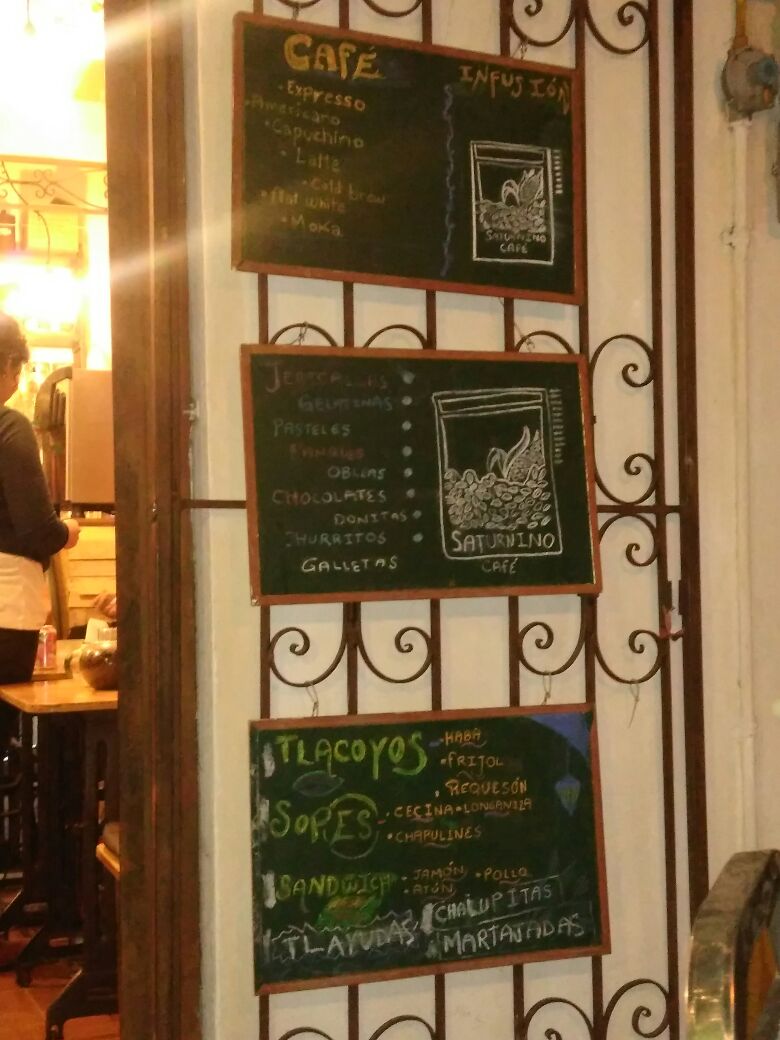 CAFÉ
INFUSIÓN
• Expresso
• Americano
• Capuchino
• Latte
• Cold brew
• flat white
• Moka
SATURNINO
CAFÉ
JERICALLAS
GELATINAS
PASTELES
PANQUES
OBLEAS
CHOCOLATES
DONITAS
CHURRITOS
GALLETAS
SATURNINO
CAFÉ
TLACOYOS • HABA
• FRIJOL
• REQUESÓN
SOPES • CECINA • LONGANIZA
• CHAPULINES
SANDWICH • JAMÓN • POLLO
• ATÚN
CHALUPITAS
TLAYUDAS MARTAJADAS